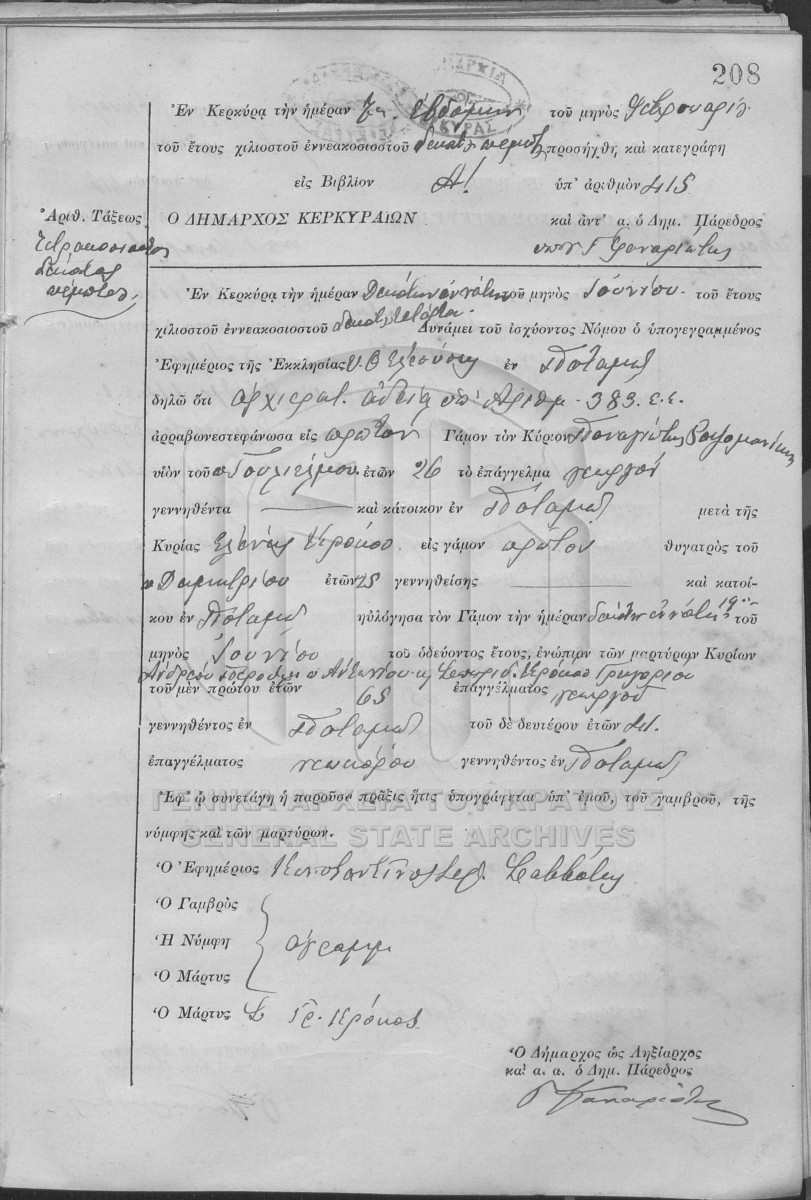 208
Ἐν Κερκύρᾳ τὴν ἡμέραν 7η Ἑβδόμην τοῦ μηνὸς Φεβρουαρίου
τοῦ ἔτους χιλιοστοῦ ἐννεακοσιοστοῦ δεκάτου πέμπτου προσήχθη καὶ κατεγράφη
εἰς Βιβλίον Α! ὑπ' ἀριθμὸν 415
Ἀριθ. Τάξεως Ο ΔΗΜΑΡΧΟΣ ΚΕΡΚΥΡΑΙΩΝ καὶ ἀντ' α. ὁ Δημ. Πάρεδρος
Τετρακοσιοστὸς
δέκατος
πέμπτος
Ἐν Κερκύρᾳ τὴν ἡμέραν Δεκάτην ἐννάτην τοῦ μηνὸς Ἰουνίου τοῦ ἔτους
χιλιοστοῦ ἐννεακοσιοστοῦ δεκάτου τετάρτου Δυνάμει τοῦ ἰσχύοντος Νόμου ὁ ὑπογεγραμμένος
Ἐφημέριος τῆς Ἐκκλησίας Υ. Θ. Ἐλεούσης ἐν Ποταμῷ
δηλῶ ὅτι ἀρχιερατ. ἀδείᾳ ὑπ' Ἀριθμ. 383. ἐ.ἔ.
ἀρραβωνεστεφάνωσα εἰς πρῶτον Γάμον τὸν Κύριον Παναγιώτην
υἱὸν τοῦ π Γουλιέλμου ἐτῶν 26 τὸ ἐπάγγελμα γεωργὸν
γεννηθέντα — καὶ κάτοικον ἐν Ποταμῷ μετὰ τῆς
Κυρίας Ἑλένης Κρόκου εἰς γάμον πρῶτον θυγατρὸς τοῦ
π Δημητρίου ἐτῶν 25 γεννηθείσης — καὶ κατοί-
κου ἐν Ποταμῷ ηὐλόγησα τὸν Γάμον τὴν ἡμέραν δεκάτην ἐννάτην 19ην τοῦ
μηνὸς Ἰουνίου τοῦ ὁδεύοντος ἔτους, ἐνώπιον τῶν μαρτύρων Κυρίων
Ἀνδρέου π Ἀντωνίου κ Σπυρίδ. Κρόκου Γρηγορίου
τοῦ μὲν πρώτου ἐτῶν 65 ἐπαγγέλματος γεωργοῦ
γεννηθέντος ἐν Ποταμῷ τοῦ δὲ δευτέρου ἐτῶν 41.
ἐπαγγέλματος νεωκόρου γεννηθέντος ἐν Ποταμῷ
Ἐφ' ᾧ συνετάγη ἡ παροῦσα πρᾶξις ἥτις ὑπογράφεται ὑπ' ἐμοῦ, τοῦ γαμβροῦ, τῆς
νύμφης καὶ τῶν μαρτύρων.
ΓΕΝΙΚΑ ΑΡΧΕΙΑ ΤΟΥ ΚΡΑΤΟΥΣ
GENERAL STATE ARCHIVES
Ὁ Ἐφημέριος Κωνσταντῖνος Ἱερ. Σαββάνης
Ὁ Γαμβρὸς
Ἡ Νύμφη ἀγράμμ
Ὁ Μάρτυς
Ὁ Μάρτυς Σ Γρ. Κρόκος
Ὁ Δήμαρχος ὡς Ληξίαρχος
καὶ α. α. ὁ Δημ. Πάρεδρος